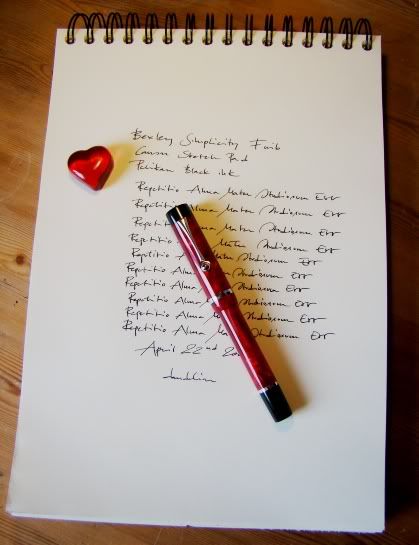 Bexley Simplicity F nib
Canson Sketch Pad
Pelikan Black ink
Repetitio Alma Mater Studiorum Est
Repetitio Mater Studiorum Est
Repetitio Mater Studiorum Est
Repetitio Mater Studiorum Est
Repetitio Alma Studiorum Est
Repetitio Alma Studiorum Est
Repetitio Alma Studiorum Est
Repetitio Alma Studiorum Est
Repetitio Alma Studiorum Est
Repetitio Alma Studiorum Est
April 22nd